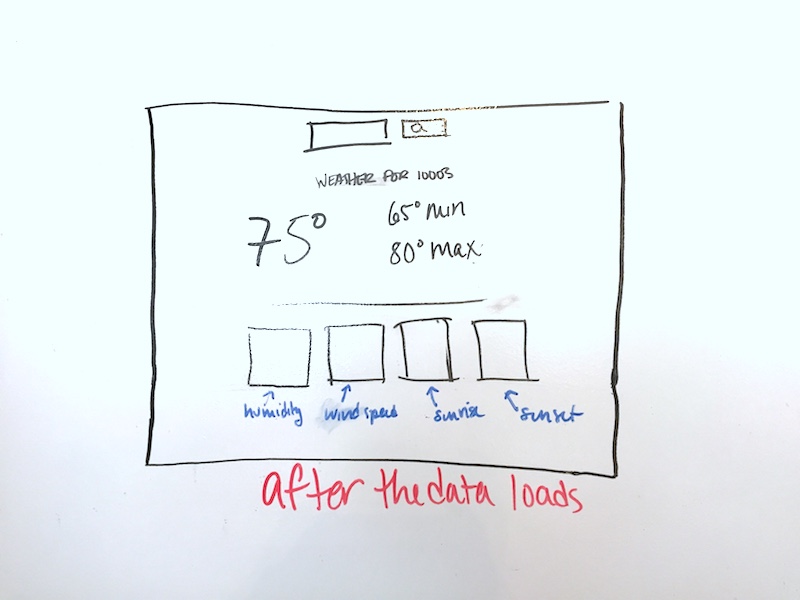 WEATHER FOR 10003
75°
65° min
80° max
humidity
wind speed
sunrise
sunset
after the data loads